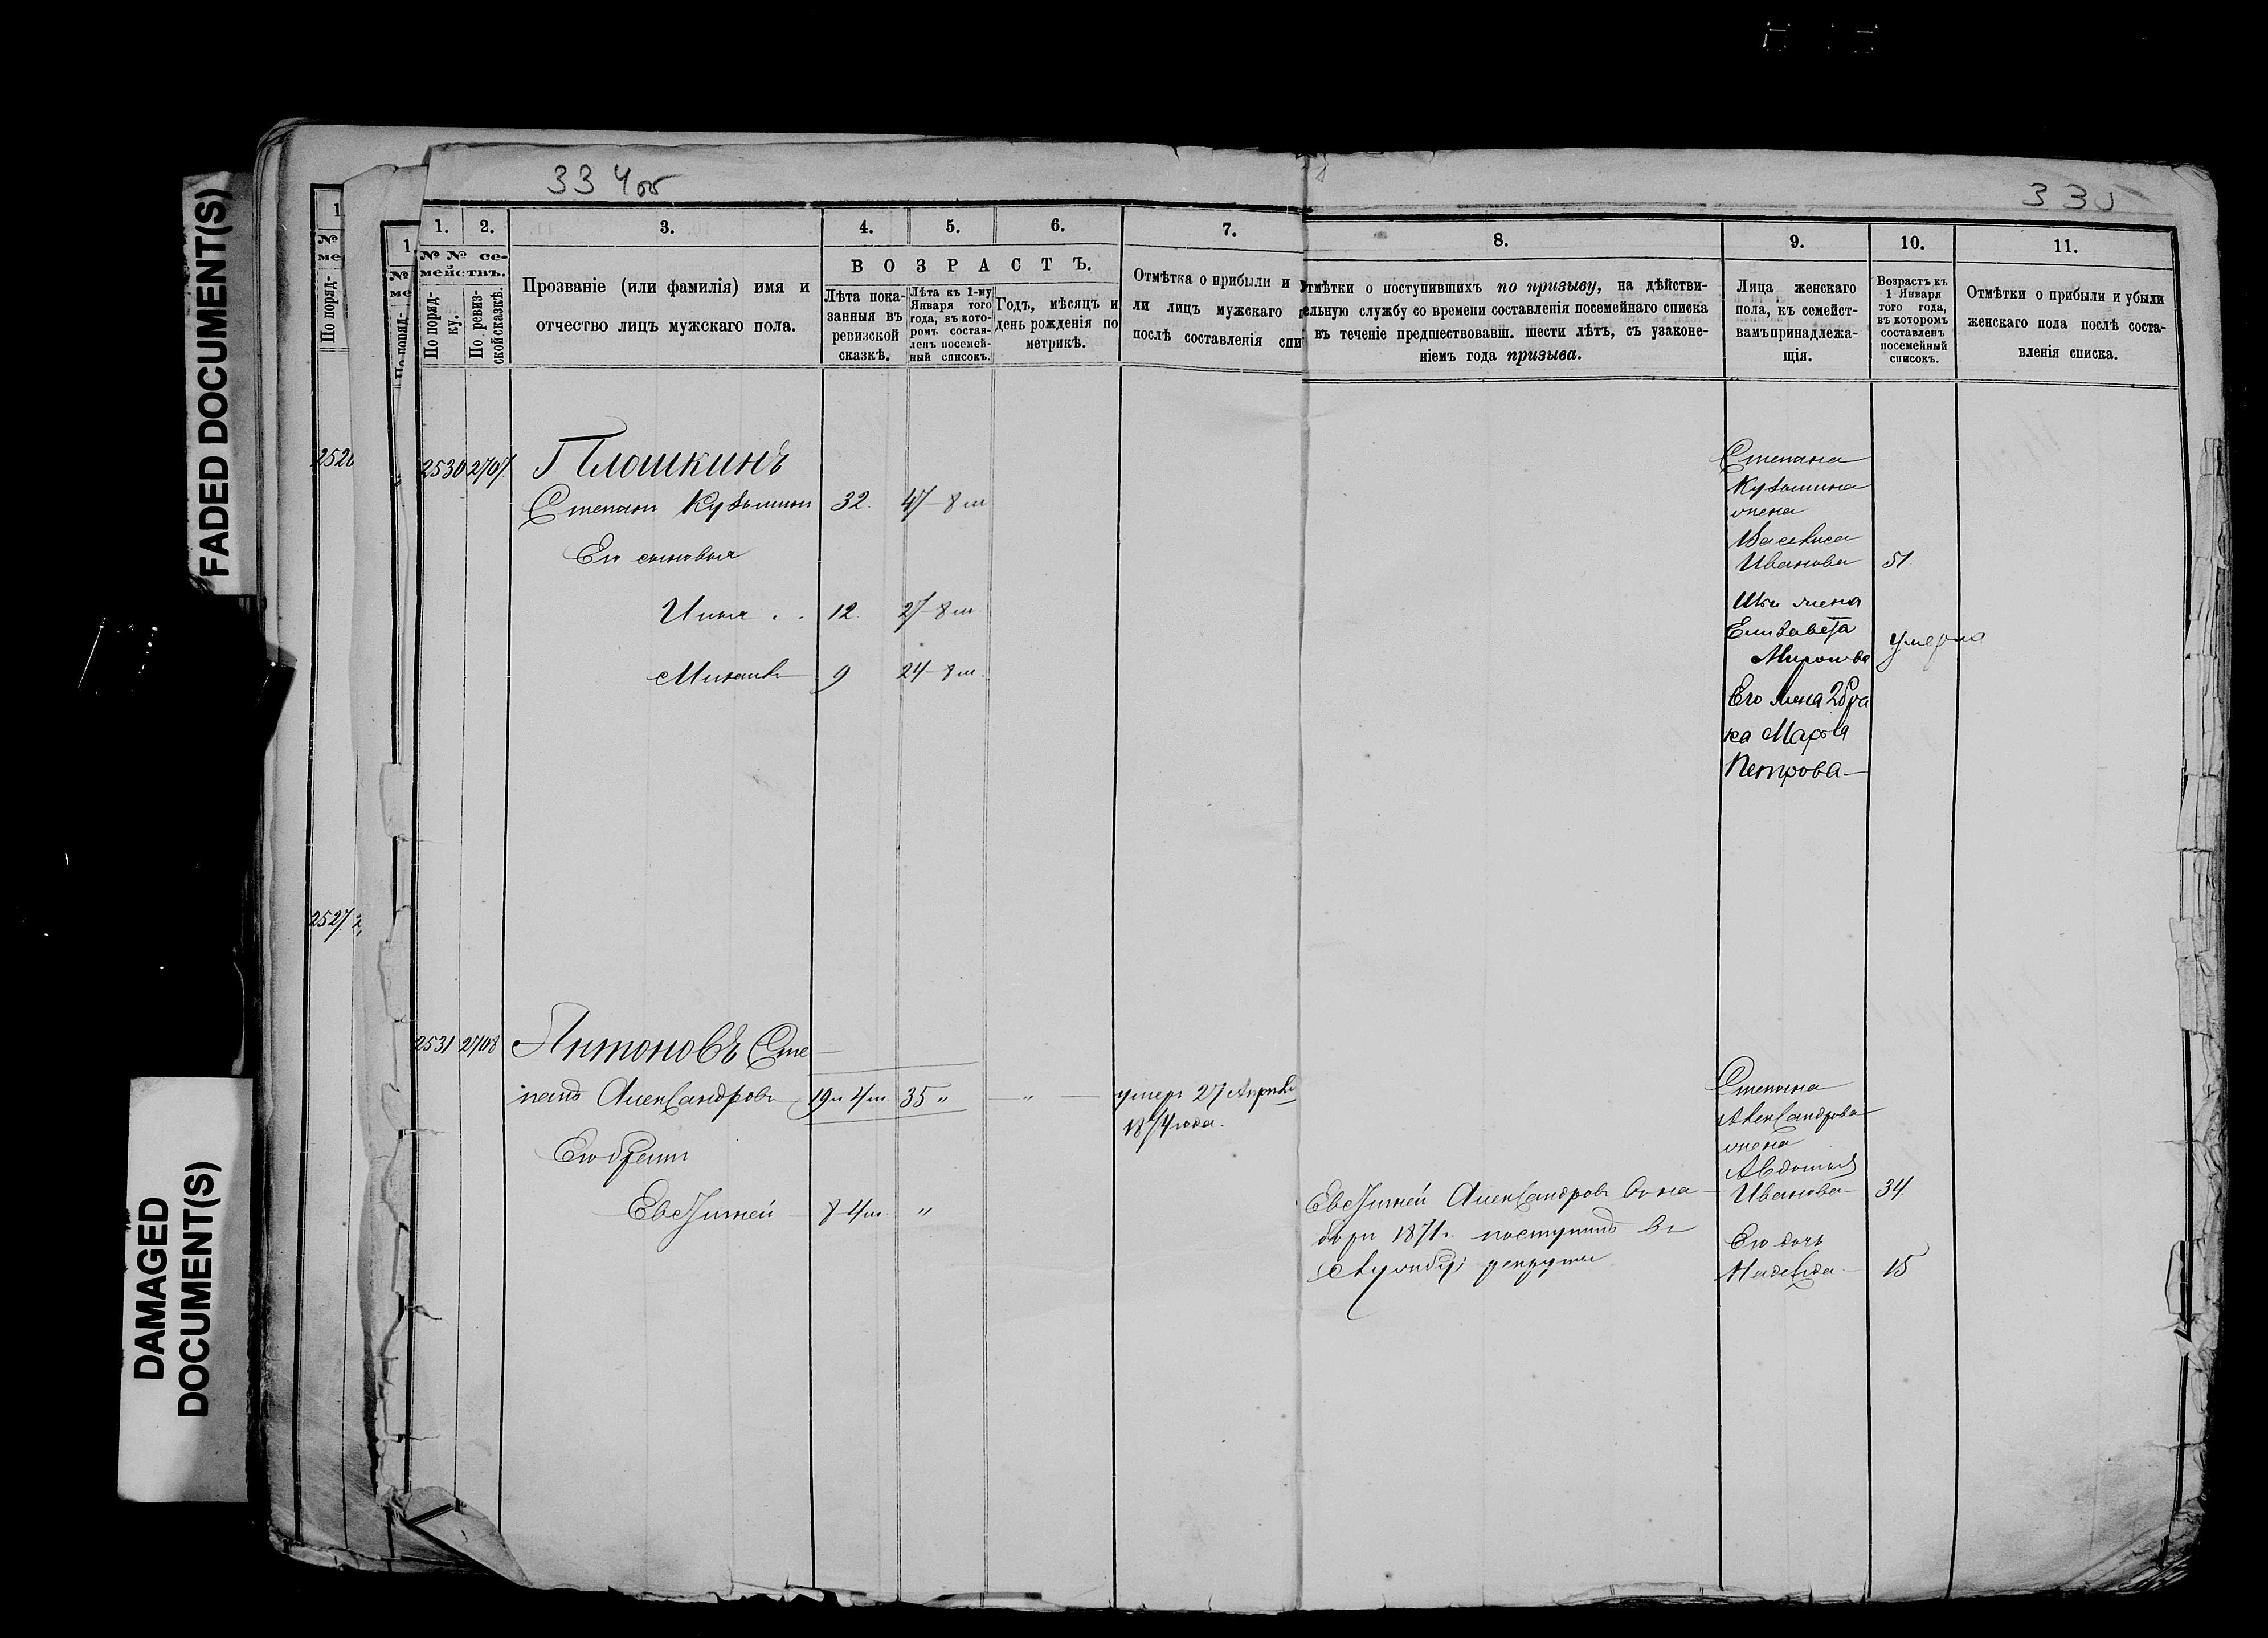 334об
335
FADED DOCUMENT(S)
DAMAGED
DOCUMENT(S)
1. 2. 3. 4. 5. 6. 7. 8. 9. 10. 11.
№ № се-
мействъ.
По поряд-
ку.
По ревиз-
ской сказкѣ.
Прозваніе (или фамилія) имя и
отчество лицъ мужскаго пола.
ВОЗРАСТЪ.
Лѣта пока-
занныя въ
ревизской
сказкѣ.
Лѣта къ 1-му
Января того
года, въ кото-
ромъ состав-
ленъ посемей-
ный списокъ.
Годъ, мѣсяцъ и
день рожденія по
метрикѣ.
Отмѣтка о прибыли и
ли лицъ мужскаго
послѣ составленія спи
тмѣтки о поступившихъ по призыву, на дѣйстви-
ельную службу со времени составленія посемейнаго списка
въ теченіе предшествовавш. шести лѣтъ, съ узаконе-
ніемъ года призыва.
Лица женскаго
пола, къ семейст-
вамъ принадлежа-
щія.
Возрастъ къ
1 Января
того года,
въ которомъ
составленъ
посемейный
списокъ.
Отмѣтки о прибыли и убыли
женскаго пола послѣ соста-
вленія списка.
2530 2707. Плошкинъ
Степанъ Кузьминъ 32. 47-8 м
Его сыновья
Илья . . 12. 27-8 м
Михаилъ 9 24-8 м.
Степана
Кузьмина
жена
Васевиса
Иванова 51.
Ильи жена
Елизавета
Миронова умерла
Его жена 2 бра
ка Марфа
Петрова
2531 2708 Антоновъ Сте
панъ Александровъ 19 и 4 м 35 „ „ умеръ 27 Апрѣля
1874 года.
Его братъ
Евстигней 8-4 м. „
Евстигней Александровъ въ на
боръ 1871 г. поступилъ въ
службу рекрутъ
Степана
Александрова
жена
Авдотья
Иванова 34
Его дочь
Надежда 15
2527